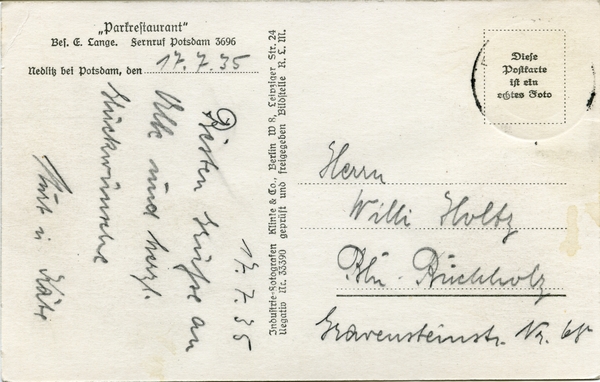 „Parkrestaurant"
Bes. E. Lange. Fernruf Potsdam 3696
Nedlitz bei Potsdam, den 17.7.35
17.7.35
Besten Grüße an
Alle und herzl.
Glückwünsche
Kurt u Käte
Industrie-Fotografen Klinke & Co., Berlin W 8, Leipziger Str. 24
Negativ Nr. 33390 geprüft und freigegeben Bildstelle R. L. M.
Diese
Postkarte
ist ein
echtes Foto
Herrn
Willi Holtz
Bln. Buchholz
Gravensteinstr. Nr.